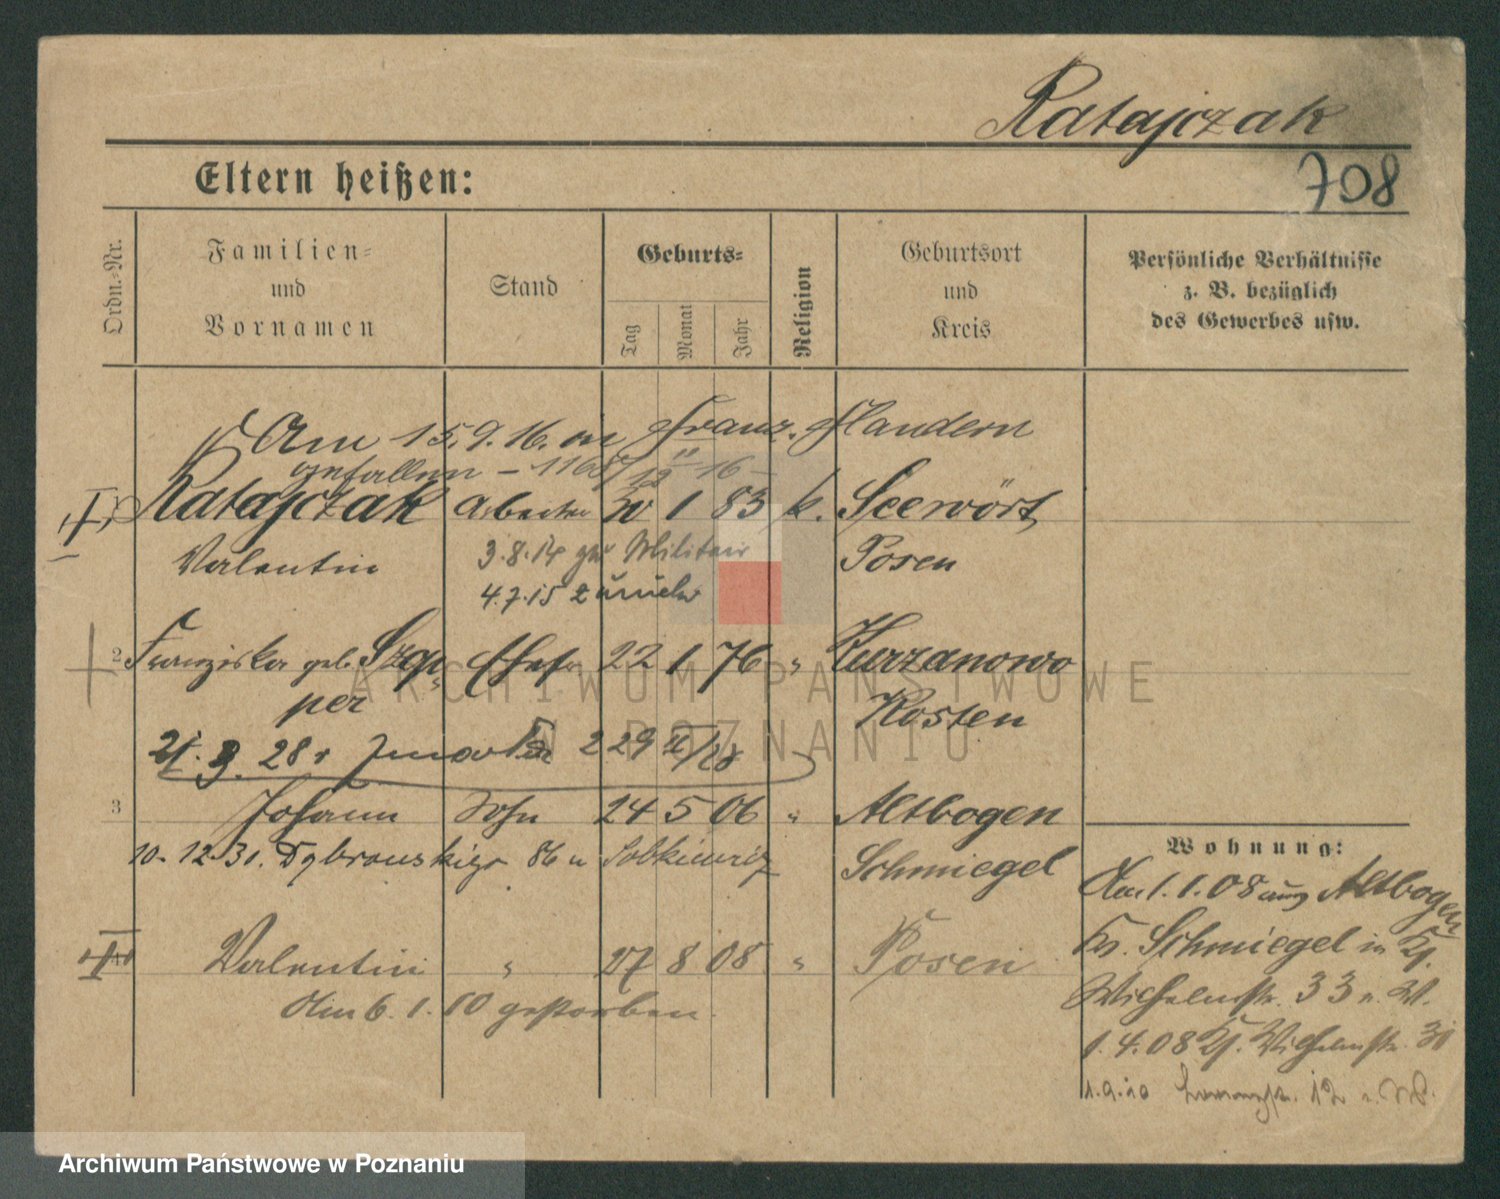 Ratajczak
708
Eltern heißen:
Ordn.-Nr.
Familien- und Vornamen
Stand
Geburts-
Tag
Monat
Jahr
Religion
Geburtsort und Kreis
Persönliche Verhältnisse z. B. bezüglich des Gewerbes usw.
Am 15.9.16. in Franz. Flandern
gefallen - 1168/12 16 -
Ratajczak Arbeiter 30 1 83 k. Seewört
Valentin 3.8.14 zu Militair Posen
4.7.15 zurück
2 Franziska geb. Szep- Ehefr 22 1 76 " Kurzanowo
per Kosten
21.3.28
3 Johann Sohn 24 5 06 " Altbogen
10.12.31. Dąbrowskiego 86 u Sobkiewicz Schmiegel
Valentin " 27 8 08 " Posen
Am 6.1.10 gestorben.
Wohnung:
Am 1.1.08 aus Altbogen
Kr. Schmiegel in
Wilhelmstr. 33 n. W.
1.4.08 Wilhelmstr. 31
1.9.10 12 n. W.
ARCHIWUM PAŃSTWOWE
W POZNANIU
Archiwum Państwowe w Poznaniu